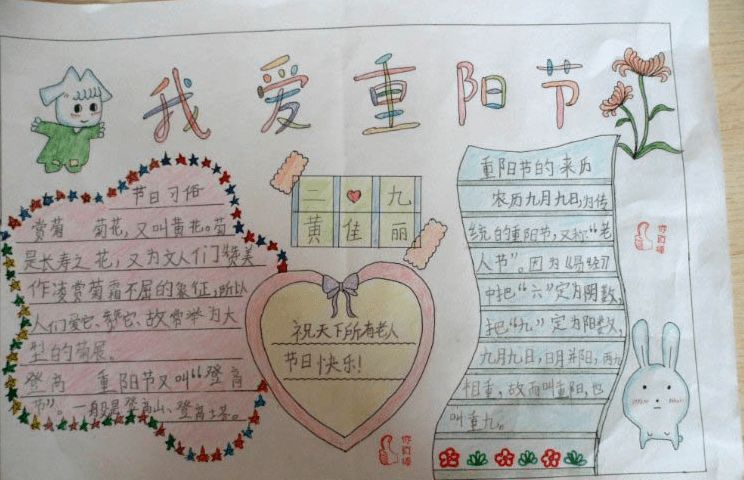 我爱重阳节
节日习俗
赏菊 菊花，又叫黄花。菊
是长寿之花，又为文人们赞美
作凌赏菊霜不屈的象征，所以
人们爱它、赞它、故常举为大
型的菊展。
登高 重阳节又叫“登高
节”。一般是登高山、登高塔。
二❤九
黄佳丽
祝天下所有老人
节日快乐！
你真棒
重阳节的来历
农历九月九日，为传
统的重阳节，又称“老
人节”。因为《易经》
中把“六”定为阴数，
把“九”定为阳数，
九月九日，日月并阳，两九
相重，故而叫重阳，也
叫重九。
你真棒